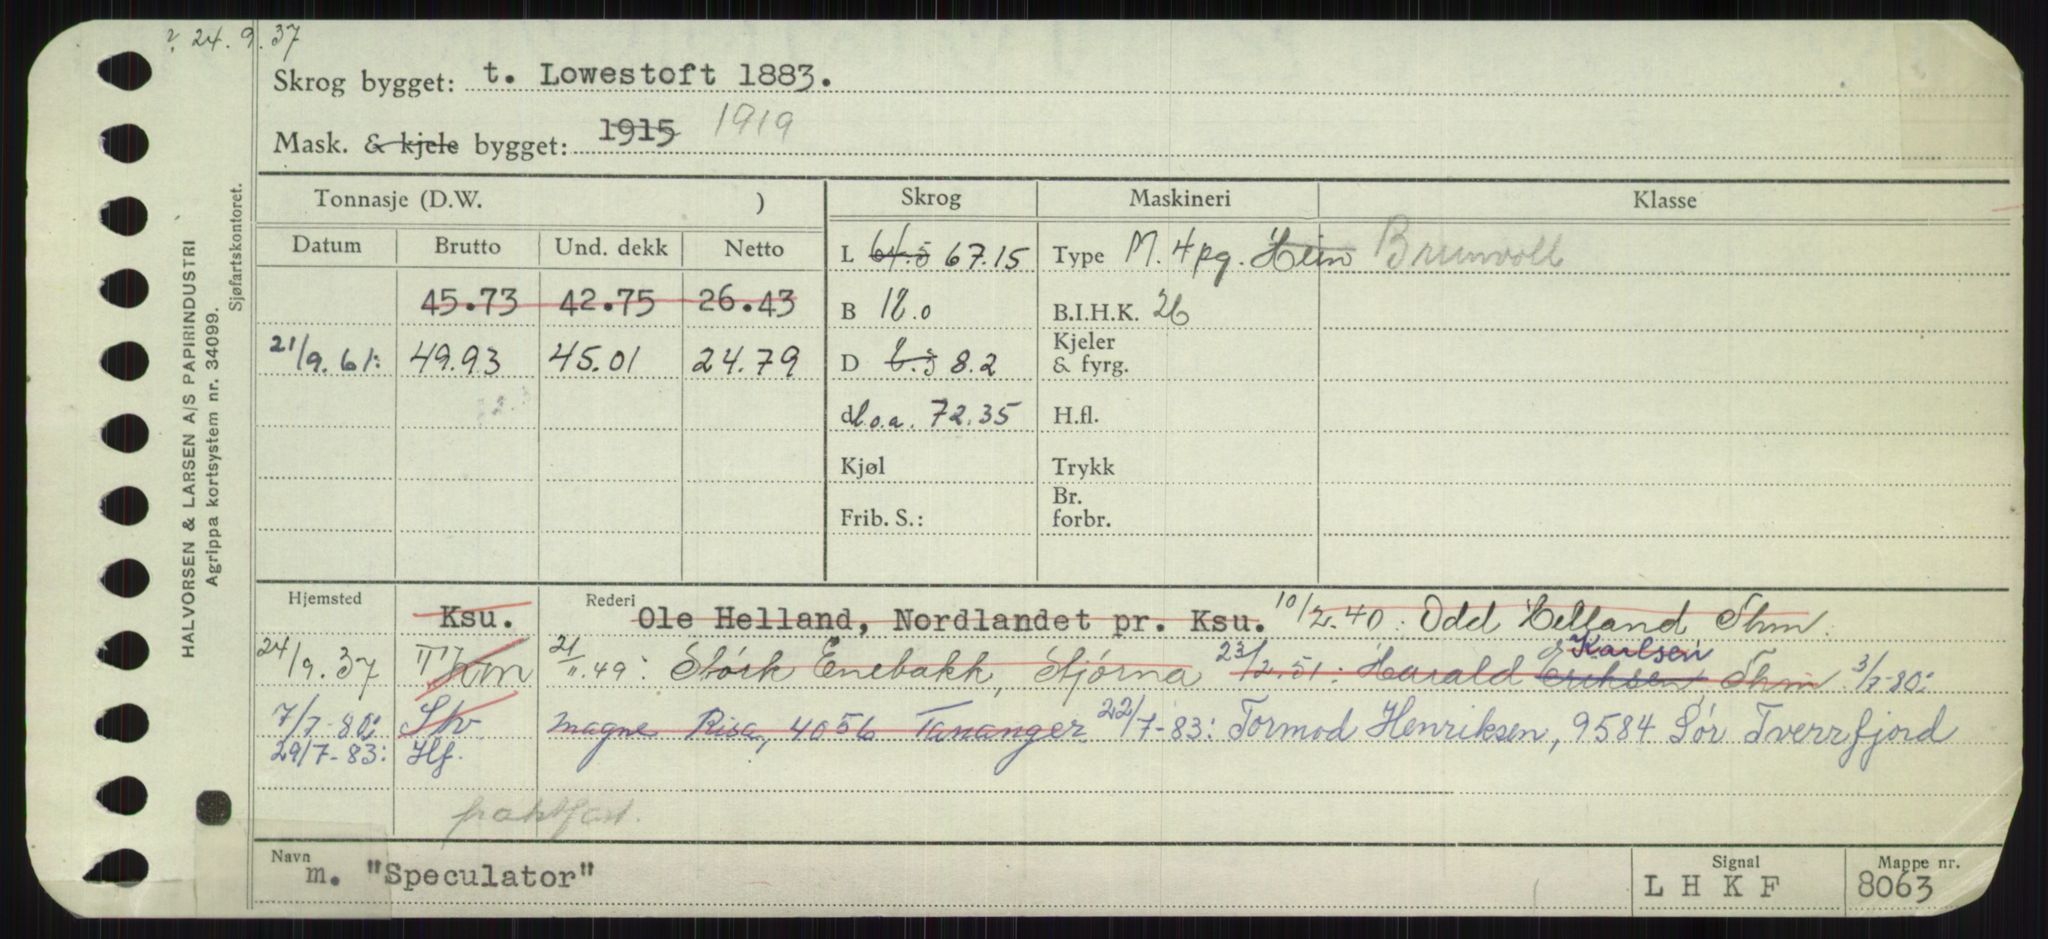 24.9.37
Skrog bygget: t. Lowestoft 1883.
Mask. & kjele bygget: 1915 1919
Tonnasje (D.W. ) Skrog Maskineri Klasse
Datum Brutto Und. dekk Netto L 64.5 67.15 Type M. 4 pg. Hein Brunvoll
45.73 42.75 26.43 B 18.0 B.I.H.K. 26
21/9.61: 49.93 45.01 24.79 D 8.2 Kjeler & fyrg.
d l.o.a. 72.35 H.fl.
Kjøl Trykk
Frib. S.: Br. forbr.
Hjemsted Ksu. Rederi Ole Helland, Nordlandet pr. Ksu. 10/2.40. Odd Helland Thm.
24/9.37 Thm 21/11.49: Støck Enebakk, Stjørna 23/2.51: Harald Eriksen Karlsen Thm 3/7-80:
7/7-80: Stv Magne Risa, 4056 Tananger 22/7-83: Tormod Henriksen, 9584 Sør Tverrfjord
29/7-83: Hf.
fraktfart.
Navn m. "Speculator" Signal L H K F Mappe nr. 8063
HALVORSEN & LARSEN A/S PAPIRINDUSTRI
Agrippa kortsystem nr. 34099.
Sjøfartskontoret.